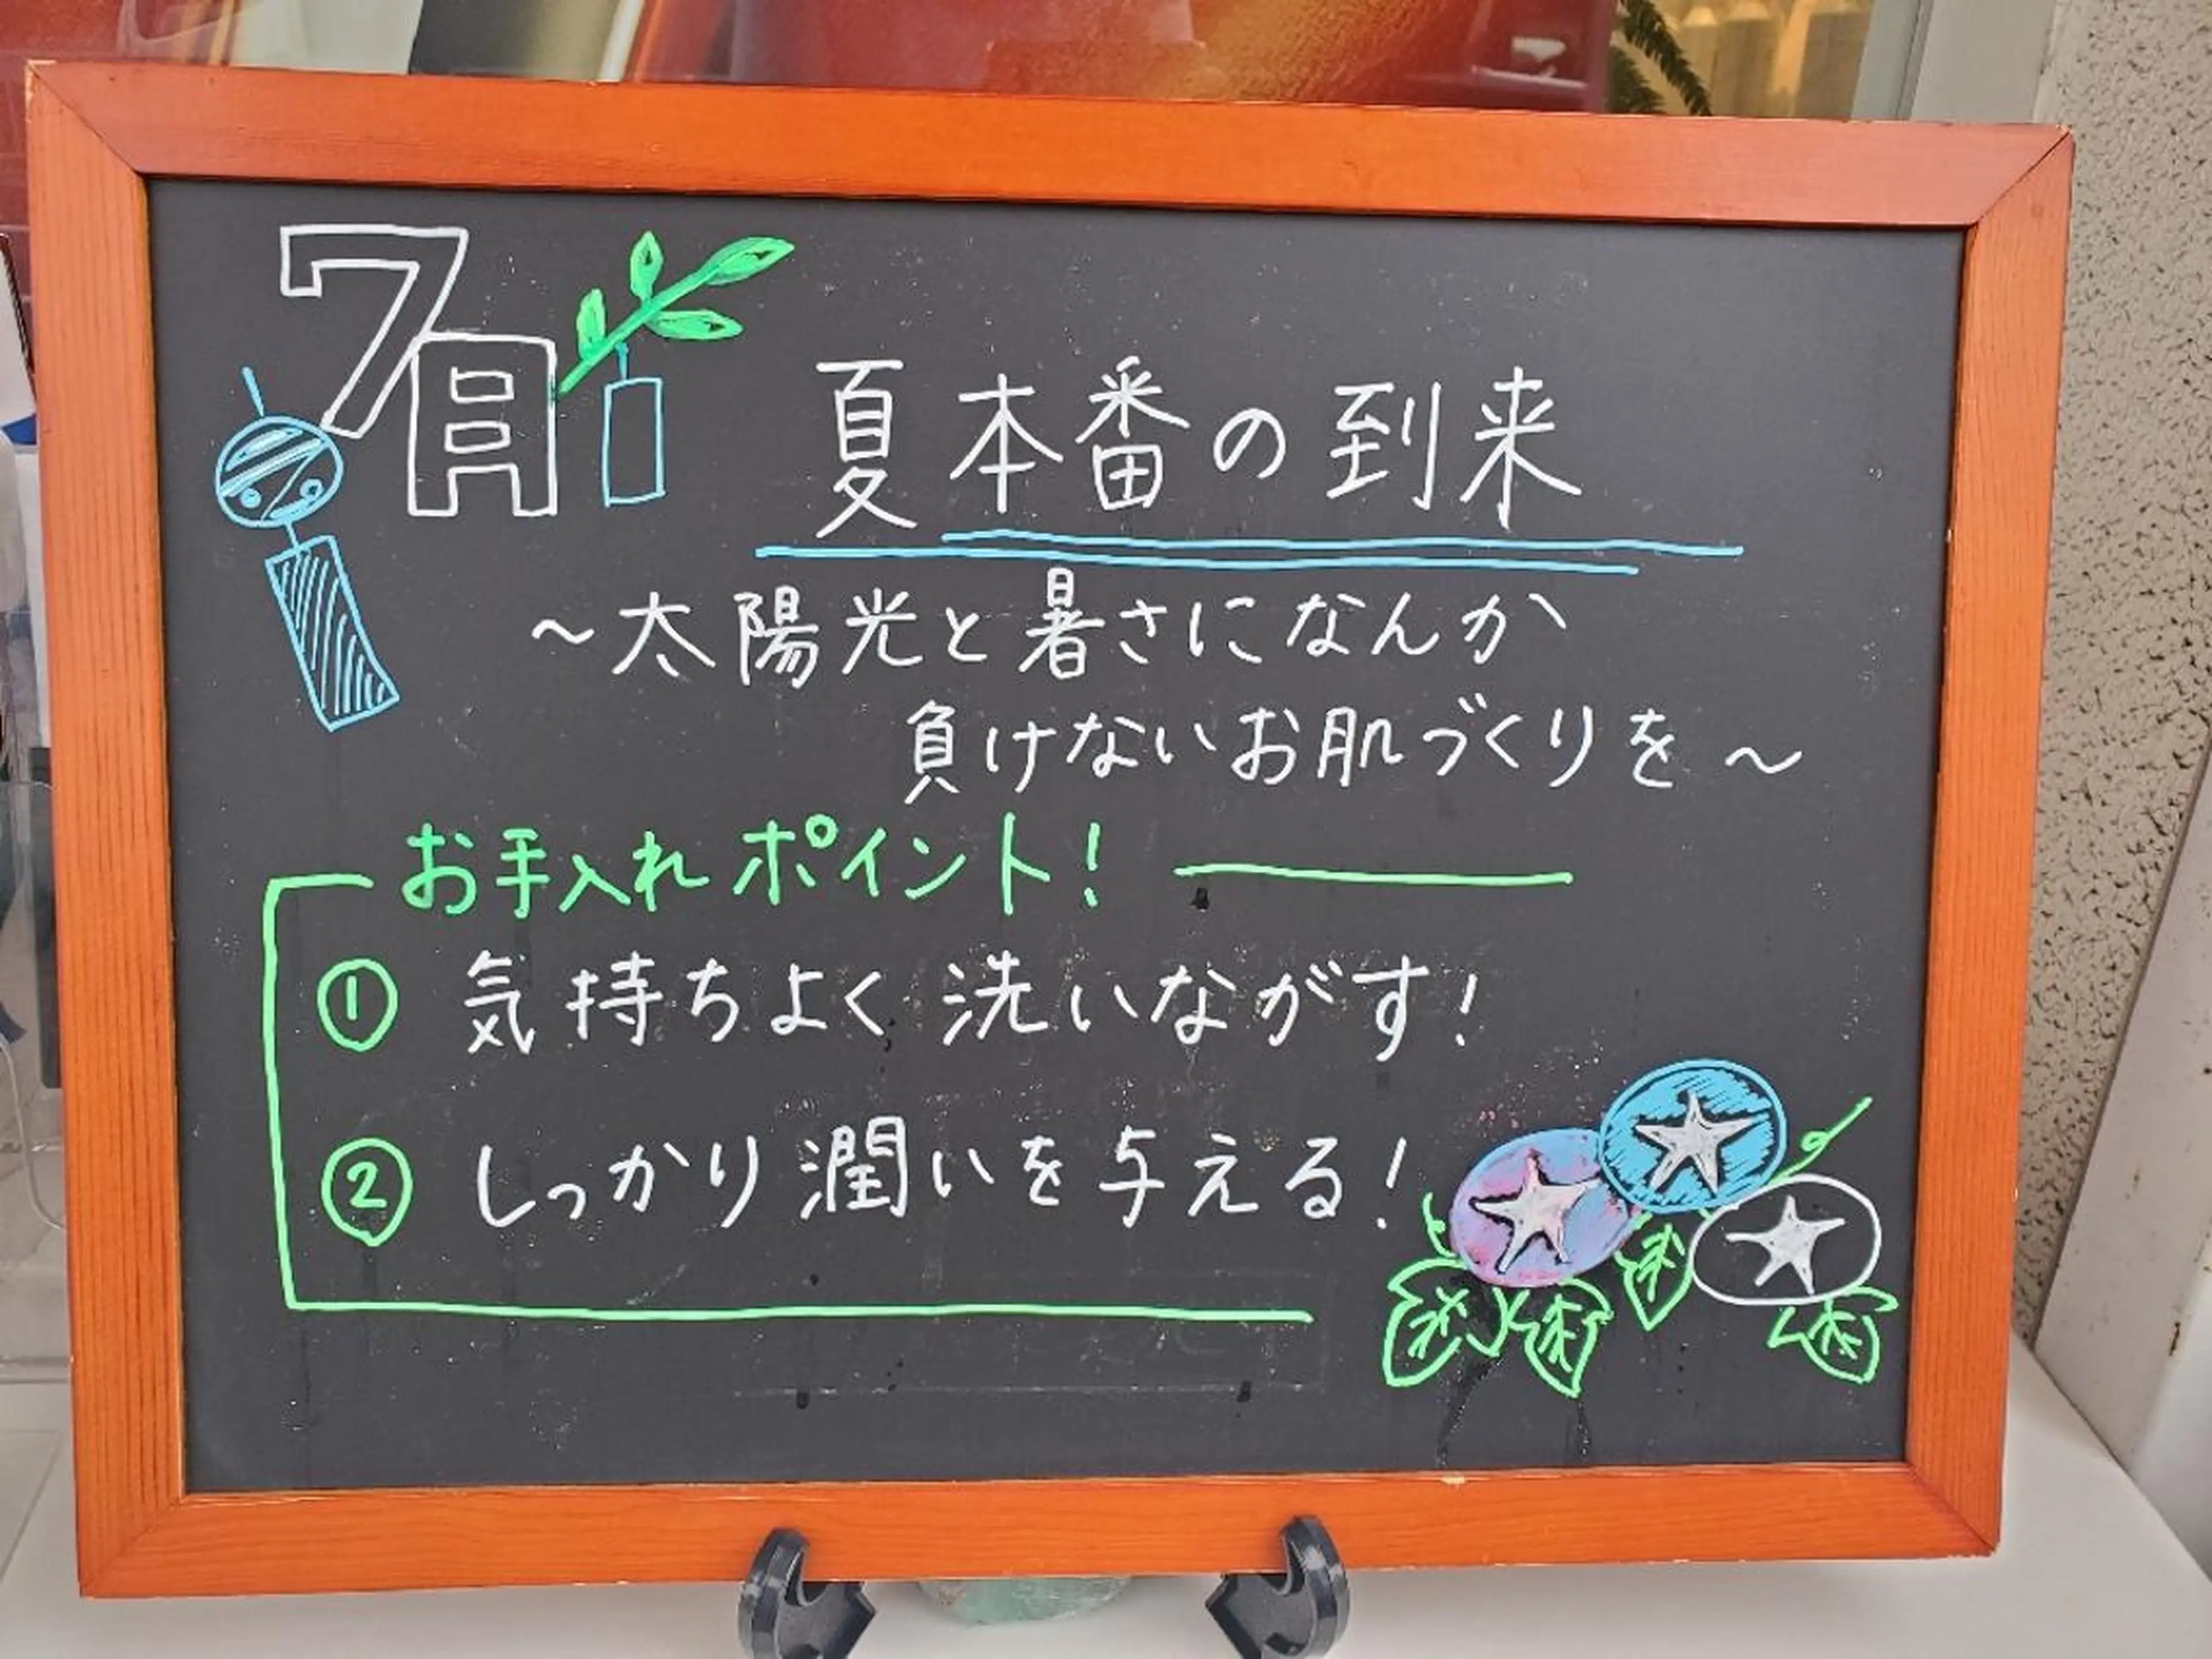 7月
夏本番の到来
～太陽光と暑さになんか
負けないお肌づくりを～
お手入れポイント！
① 気持ちよく洗いながす！
② しっかり潤いを与える！